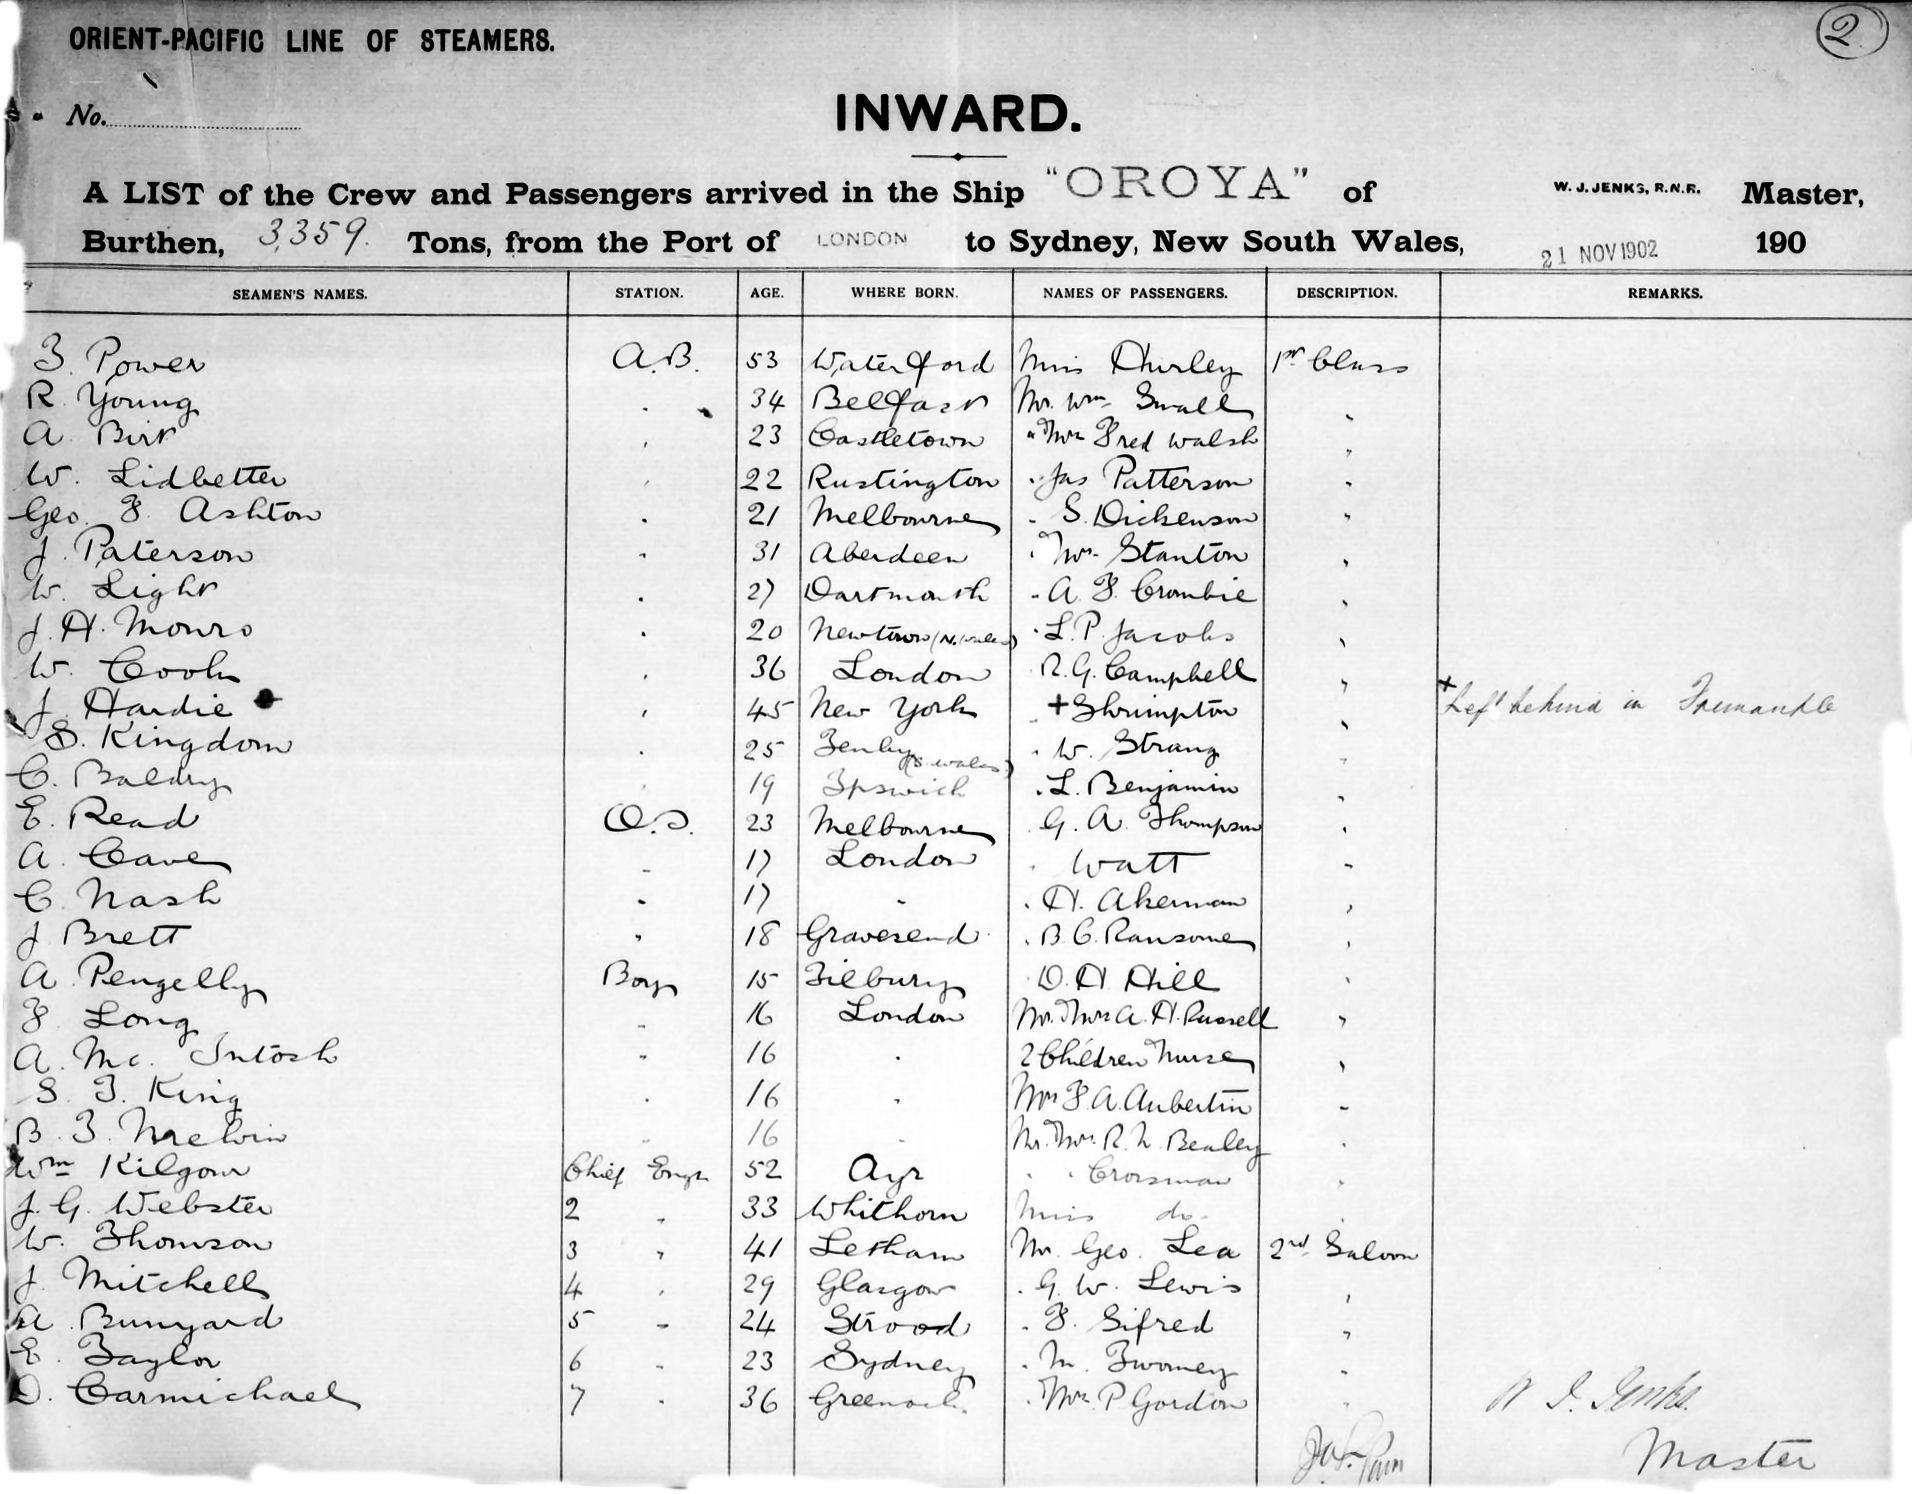 2
ORIENT-PACIFIC LINE OF STEAMERS.
No.
INWARD.
A LIST of the Crew and Passengers arrived in the Ship "OROYA" of W. J. JENKS, R.N.R. Master,
Burthen, 3,359. Tons, from the Port of LONDON to Sydney, New South Wales, 21 NOV 1902 190
SEAMEN'S NAMES. STATION. AGE. WHERE BORN. NAMES OF PASSENGERS. DESCRIPTION. REMARKS.
T. Power A.B. 53 Waterford Miss Hurley 1st Class
R. Young " 34 Belfast Mr. Wm Small "
A. Birt " 23 Castletown " Mrs Fred Walsh "
W. Lidbetter " 22 Rustington " Jas Patterson "
Geo. F. Ashton " 21 Melbourne " S. Dickenson "
J. Paterson " 31 Aberdeen " Mrs Stanton "
W. Light " 27 Dartmouth " A. F. Crombie "
J. H. Monro " 20 Newtown (N. Wales) " L. P. Jacobs "
W. Cook " 36 London R. G. Campbell "
J. Hardie " 45 New York " + Shrimpton " + Left behind in Fremantle
S. Kingdom " 25 Tenby (S. Wales) " W. Strang "
C. Baldry 19 Ipswich " L. Benjamin "
E. Read O.S. 23 Melbourne " G. A. Thompson "
A. Cave " 17 London " Watt "
C. Nash " 17 " " H. Akerman "
J. Brett " 18 Gravesend " B. C. Ransome "
A. Pengelly Boy 15 Tilbury " D. H. Hill "
F. Long " 16 London Mr. Mrs A. H. Russell "
A. Mc. Intosh " 16 " 2 Children Nurse "
S. T. King " 16 " Mrs F. A. Aubertin "
B. T. Melvin " 16 " Mr. Mrs. R. N. Bealey "
Wm Kilgour Chief Engr 52 Ayr " " Crossman "
J. G. Webster 2 " 33 Whithorn Miss do. "
W. Thomson 3 " 41 Letham Mr. Geo. Lea 2nd Saloon
J. Mitchell 4 " 29 Glasgow " G. W. Lewis "
A. Bunyard 5 " 24 Strood " F. Sifred "
E. Taylor 6 " 23 Sydney " M. Twomey "
D. Carmichael 7 " 36 Greenock " Mrs. P. Gordon "
W. J. Jenks.
Master